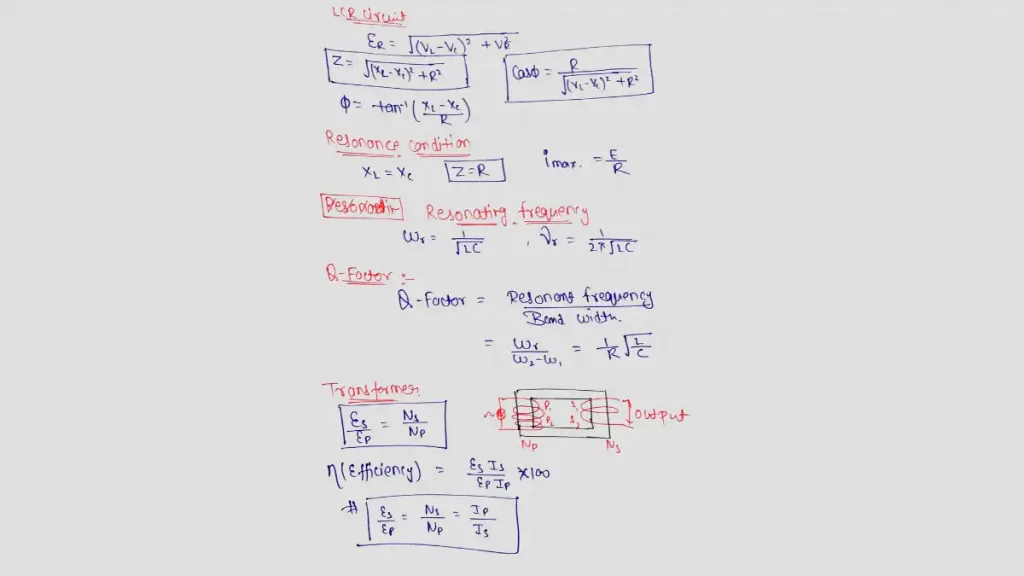 LCR Circuit
ER = √(VL-Vc)² + VR²
Z = √(XL-Xc)² + R²
Cosϕ = R / √(XL-Xc)² + R²
ϕ = tan⁻¹ (XL-Xc / R)
Resonance condition
XL = Xc Z=R imax. = E/R
Resonating frequency
ωr = 1/√LC , νr = 1/2π√LC
Q-Factor :-
Q-Factor = Resonant frequency / Band width.
= ωr / ω2-ω1 = 1/R √L/C
Transformer
Es/Ep = Ns/Np
~ P1 P2 S1 S2 Output
Np Ns
η(Efficiency) = Es Is / Ep Ip ×100
# Es/Ep = Ns/Np = Ip/Is